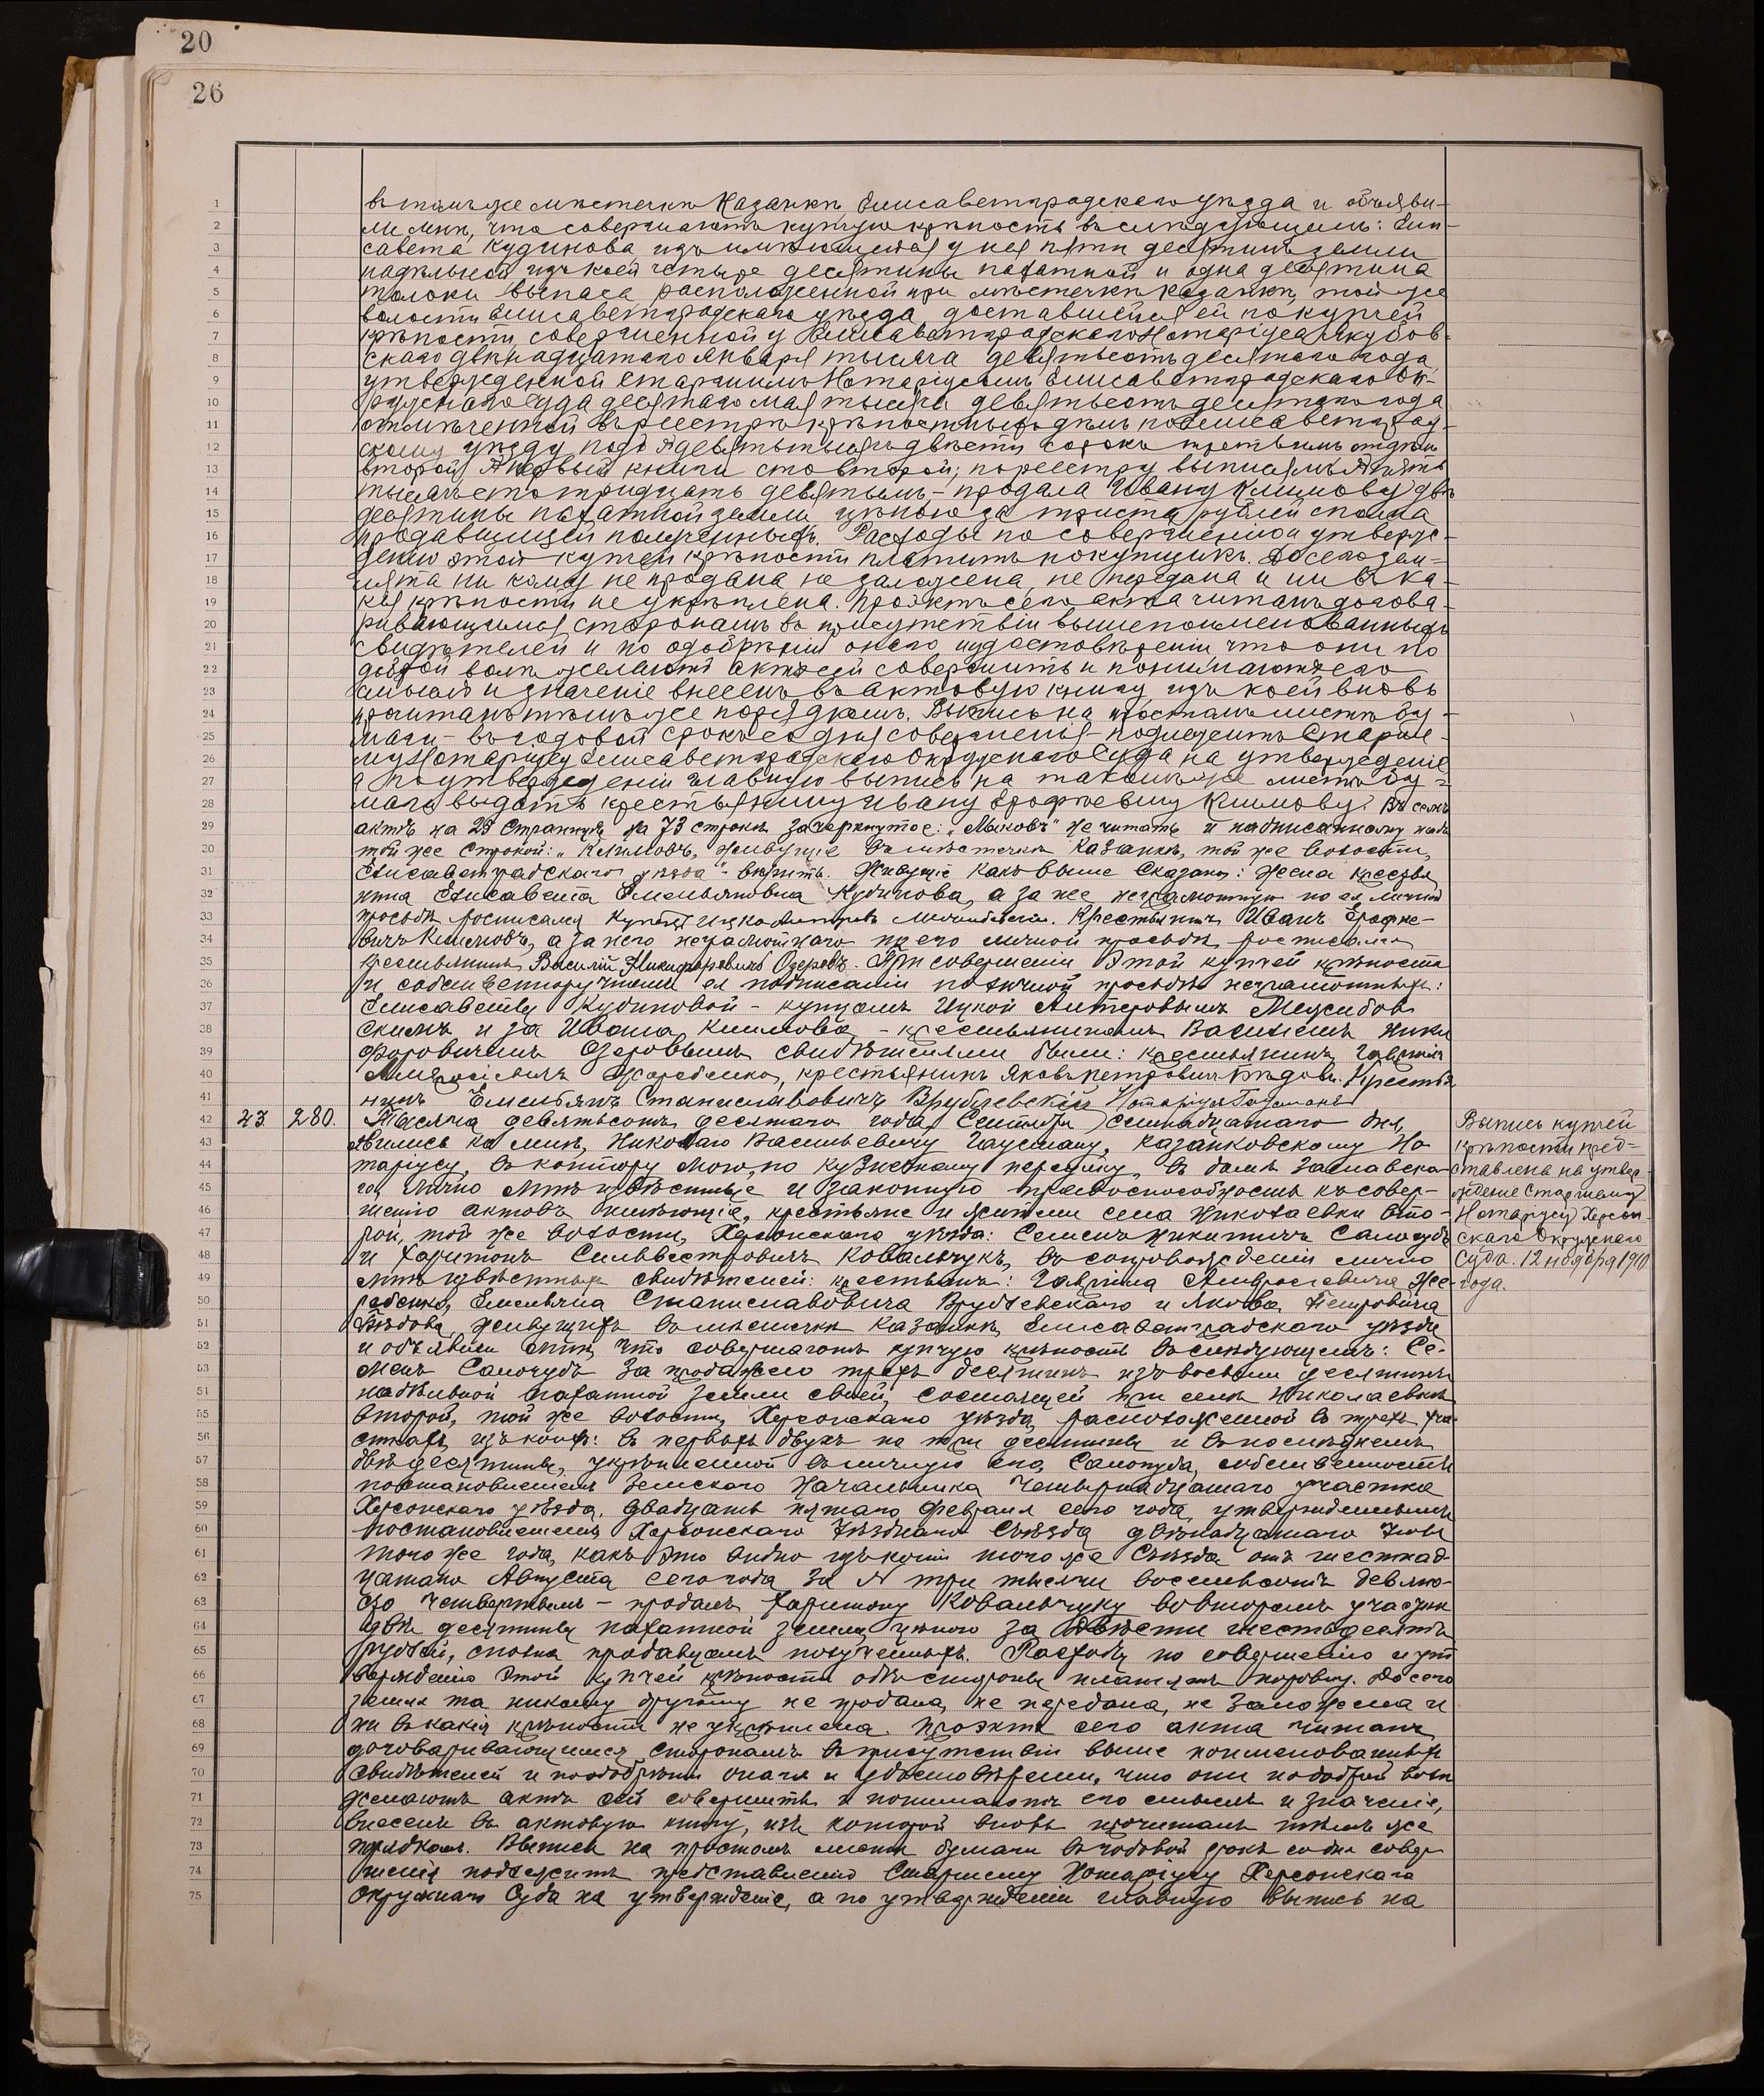 20
26
1 въ томъ же мѣстечкѣ Казанкѣ, Елисаветградскаго уѣзда и объяви-
2 ли мнѣ, что совершаютъ купчую крѣпость въ слѣдующемъ: Ели-
3 савета Кудинова изъ имѣющейся у нея пяти десятинъ земли
4 надѣльной изъ коей четыре десятины пахатной и одна десятина
5 толоки выпаса расположенной при мѣстечкѣ Казанкѣ, той же
6 волости Елисаветградскаго уѣзда, доставшейся ей по купчей
7 крѣпости, совершенной у Елисаветградскаго Нотаріуса Якубов-
8 скаго двѣнадцатаго Января тысяча девятьсотъ десятаго года,
9 утвержденной Старшимъ Нотаріусомъ Елисаветградскаго Ок-
10 ружнаго Суда десятаго мая тысяча девятьсотъ десятаго года
11 отмѣченной въ реестрѣ крѣпостныхъ дѣлъ по Елисаветград-
12 скому уѣзду подъ № девять тысячъ двѣсти сорокъ третьимъ отдѣлъ
13 второй № первый книги сто второй, по реестру выписямъ № пять
14 тысячъ сто тридцать девятымъ, - продала Ивану Климову двѣ
15 десятины пахатной земли цѣною за триста рублей сполна
16 продавщицей полученныхъ. Расходы по совершенію и утверж-
17 денію этой купчей крѣпости платитъ покупщикъ. До сего зем-
18 ля та ни кому не продана не заложена, не передана и ни въ ка-
19 кія крѣпости не укрѣплена. Проэктъ сего акта читанъ догова-
20 ривающимся сторонамъ въ присутствіи вышепоименованныхъ
21 свидѣтелей и по одобреніи онаго, и удостовѣреніи что они по
22 доброй волѣ желаютъ актъ сей совершить и понимаютъ его
23 смыслъ и значеніе внесенъ въ актовую книгу, изъ коей вновь
24 прочитанъ тѣмъ же порядкомъ. Выпись на простомъ листѣ бу-
25 маги - въ годовой срокъ со дня совершенія - подлежитъ Старше-
26 му Нотаріусу Елисаветградскаго Окружнаго Суда на утвержденіе
27 а по утвержденіи главную выпись на такомъ же листѣ бу-
28 маги выдать крестьянину Ивану Ерофѣевичу Климову. Въ семъ
29 актѣ на 25 Страницѣ на 73 строкѣ зачеркнутое: „Лыковъ" не читать и надписанному надъ
30 той же строкой: „Климовъ, живущіе въ мѣстечкѣ Казанкѣ, той же волости,
31 Елисаветградскаго уѣзда" - вѣрить. Живущіе какъ выше сказано: Жена крестья-
32 нина Елисавета Емельяновна Кудинова, а за нее неграмотную по ея личной
33 просьбѣ росписался купецъ Ицко Антеровъ Межибовскій. Крестьянинъ Иванъ Ерофѣе-
34 вичъ Климовъ, а за него неграмотнаго по его личной просьбѣ росписался
35 крестьянинъ Василій Никифоровичъ Озеровъ. При совершеніи этой купчей крѣпости
36 и собственноручномъ ея подписаніи по личной просьбѣ неграмотныхъ:
37 Елисаветы Кудиновой - купцомъ Ицкой Антеровымъ Межибов-
38 скимъ и за Ивана Климова - крестьяниномъ Василіемъ Ники-
39 форовичемъ Озеровымъ свидѣтелями были: крестьянинъ Гавріилъ
40 Амвросіевичъ Жеребенко, крестьянинъ Яковъ Петровичъ Бѣдовъ. Крестья-
41 нинъ Емельянъ Станиславовичъ Врублевскій. Нотаріусъ Гаусманъ
42 43. 280. Тысяча девятьсотъ десятаго года, Сентября семнадцатаго дня,
43 явились ко мнѣ, Николаю Васильевичу Гаусману, Казанковскому Но-
44 таріусу, въ контору мою, по Кузнечному переулку, въ домѣ Заславска-
45 го, лично мнѣ извѣстные и законную правоспособность къ совер-
46 шенію актовъ имѣющіе, крестьяне и жители села Николаевки Вто-
47 рой, той же волости, Херсонскаго уѣзда: Семенъ Никитичъ Самогудъ
48 и Харитонъ Сильвестровичъ Ковальчукъ, въ сопровожденіи лично
49 мнѣ извѣстныхъ свидѣтелей: крестьянъ: Гавріила Амвросіевича Же-
50 ребенко, Емельяна Станиславовича Врублевскаго и Якова Петровича
51 Бѣдова, живущихъ въ мѣстечкѣ Казанкѣ, Елисаветградскаго уѣзда
52 и объявили мнѣ, что совершаютъ купчую крѣпость въ слѣдующемъ: Се-
53 менъ Самогудъ за продажею трехъ десятинъ изъ восьми десятинъ
54 надѣльной пахатной земли своей, состоящей при селѣ Николаевкѣ
55 Второй, той же волости, Херсонскаго уѣзда, расположенной въ трехъ уча-
56 сткахъ, изъ коихъ: въ первыхъ двухъ по три десятины и въ послѣднемъ
57 двѣ десятины, укрѣпленной въ личную его, Самогуда, собственность
58 постановленіемъ Земскаго Начальника Четырнадцатаго участка
59 Херсонскаго уѣзда, двадцать пятаго Февраля сего года, утвержденнымъ
60 постановленіемъ Херсонскаго Уѣзднаго Съѣзда двѣнадцатаго Іюня
61 того же года, какъ это видно изъ копіи того же Съѣзда отъ шестнад-
62 цатаго Августа сего года за № три тысячи восемьсотъ девяно-
63 сто четвертымъ - продалъ Харитону Ковальчуку во второмъ участкѣ
64 двѣ десятины пахатной земли цѣною за двѣсти шестьдесятъ
65 рублей, сполна продавцомъ полученныхъ. Расходы по совершенію и ут-
66 вержденію этой купчей крѣпости обѣ стороны платятъ поровну. До сего
67 земля та никому другому не продана, не передана, не заложена и
68 ни въ какія крѣпости не укрѣплена. Проэктъ сего акта читанъ
69 договаривающимся сторонамъ въ присутствіи выше поименованныхъ
70 свидѣтелей и по одобреніи онаго и удостовѣреніи, что они по доброй волѣ
71 желаютъ актъ сей совершить и понимаютъ его смыслъ и значеніе,
72 внесенъ въ актовую книгу, изъ которой вновь прочитанъ тѣмъ же
73 порядкомъ. Выпись на простомъ листѣ бумаги въ годовой срокъ со дня совер-
74 шенія подлежитъ представленію Старшему Нотаріусу Херсонскаго
75 Окружнаго Суда на утвержденіе, а по утвержденіи главную выпись на
Выпись купчей
крѣпости пред-
ставлена на утвер-
жденіе Старшему
Нотаріусу Херсон-
скаго Окружнаго
Суда. 12 ноября 1910
года.